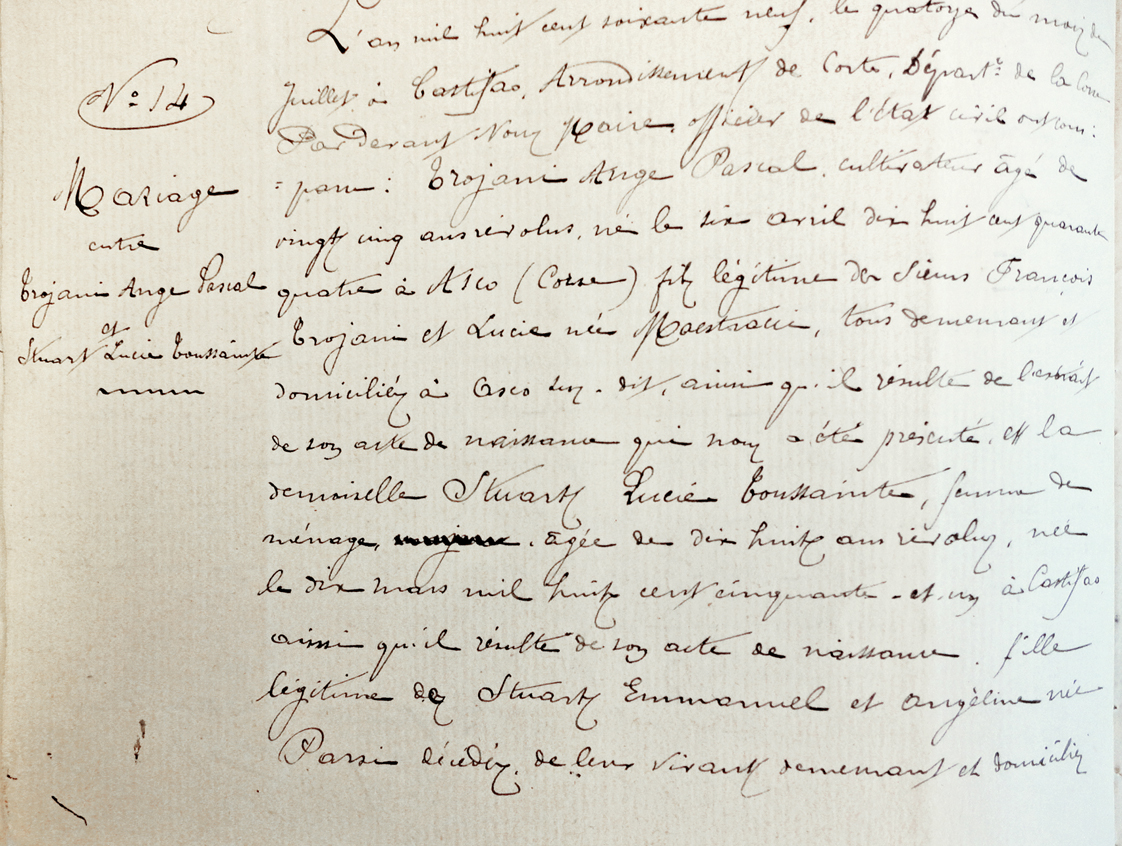 N° 14
Mariage
entre
Trojani Ange Pascal
et
Stuart Lucie Toussainte
L'an mil huit cent soixante neuf, le quatorze du mois de
Juillet à Castifao, Arrondissement de Corte, Départ.t de la Corse
Par Devant Nous Maire, officier de l'état civil ont com:
=paru : Trojani Ange Pascal, cultivateur âgé de
vingt cinq ans révolus, né le six avril dix huit cent quarante
quatre à Asco (Corse) fils légitime des Sieurs François
Trojani et Lucie née Maestracci, tous demeurant et
domiciliés à Asco sus-dit, ainsi qu'il résulte de l'extrait
de son acte de naissance qui nous a été présenté, et la
demoiselle Stuart Lucie Toussainte, femme de
ménage, âgée de dix huit ans révolus, née
le dix mars mil huit cent cinquante-et-un à Castifao
ainsi qu'il résulte de son acte de naissance, fille
légitime des Stuart Emmanuel et Angéline née
Parsi décédés, de leur vivant demeurant et domiciliés